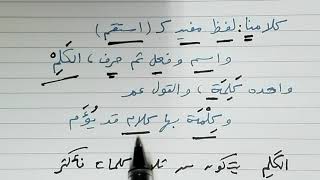 كلامنا: لفظ مفيد كـ (استقم)
واسم وفعل ثم حرف، الكَلِمْ
واحده كَلِمَة، والقول عم
وكِلْمَة بها كلام قد يُؤَم
الكلم يتكون من ثلاث كلمات فأكثر